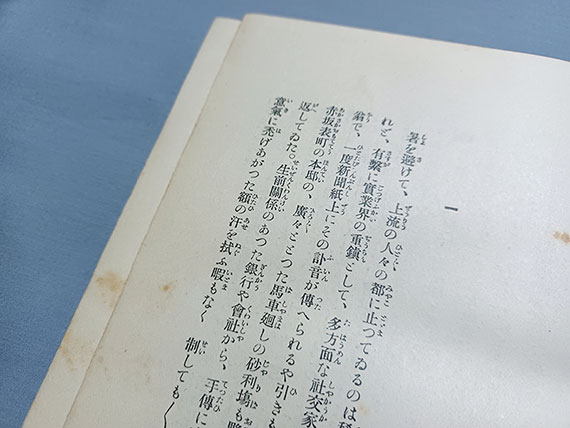 一
暑を避けて、上流の人々の都に止つてゐるのは稀
れど、有繋に實業界の重鎭として、多方面な社交家
翁で、一度新聞紙上にその訃音が傳へられるや引きも
赤坂表町の本邸の、廣々ととつた馬車廻しの砂利塲も
返してゐた。生前關係のあつた銀行や會社から、手傳に
意氣に禿げあがつた額の汗を拭ふ暇もなく 制しても〱